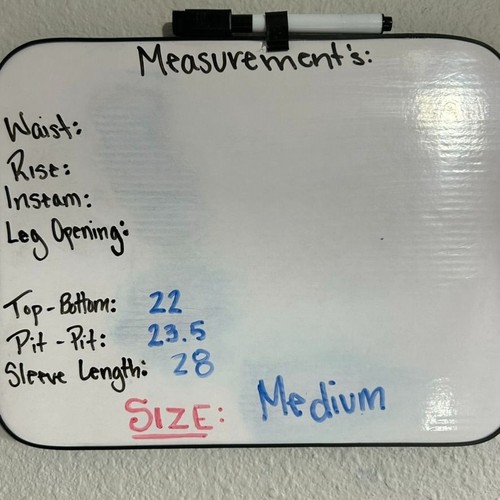 Measurement's:
Waist:
Rise:
Instam:
Leg Opening:
Top-Bottom: 22
Pit-Pit: 23.5
Sleeve Length: 28
SIZE: Medium